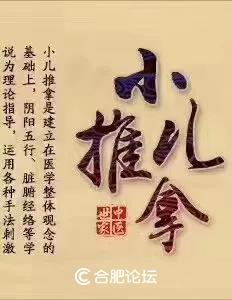 小儿推拿
中医世家
小儿推拿是建立在医学整体观念的
基础上，阴阳五行、脏腑经络等学
说为理论指导，运用各种手法刺激
合肥论坛